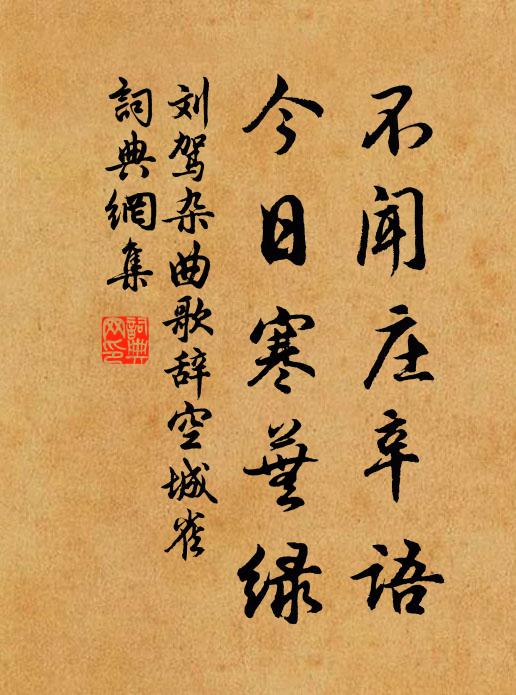 不闻庄辛语
今日寒蕪绿
刘驾杂曲歌辞空城雀
詞典網集
詞典
网印